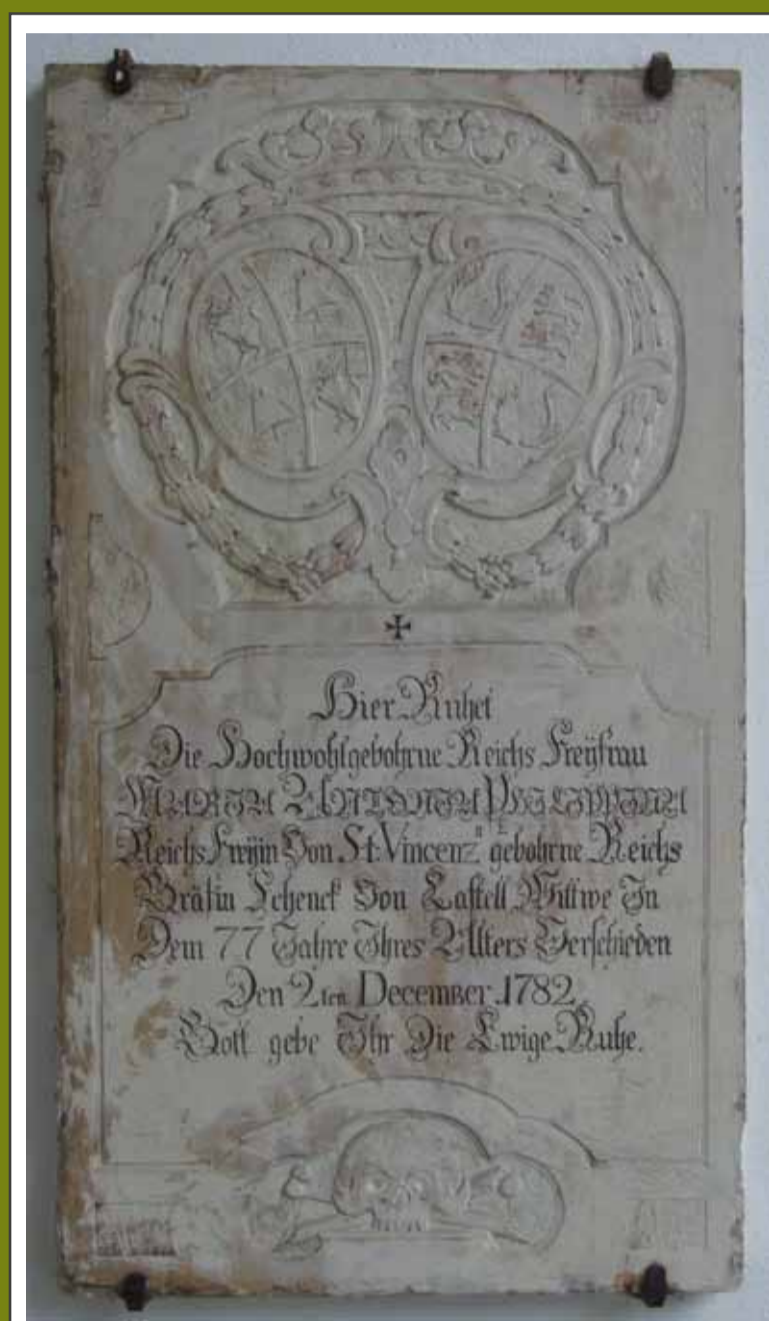 Hier Ruhet
Die Hochwohlgebohrne Reichs Freÿfrau
MARIA ANTONIA PHILIPPINA
Reichs Freÿin Von St: Vincenz gebohrne Reichs
Gräfin Schenck Von Castell Wittwe In
Dem 77 Jahre Ihres Alters Verschieden
Den 2ten December 1782
Gott gebe Ihr Die Ewige Ruhe.